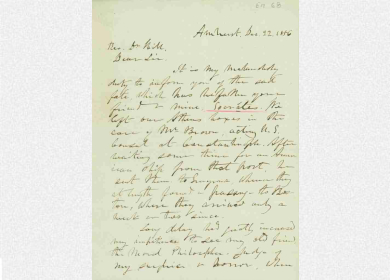 60.68
Amherst, Dec 22. 1856
Rev. Dr Hill.
Dear Sir
It is my melancholy
duty to inform you of the sad
fate which has befallen your
friend & mine. Socrates. We
left our Athens boxes in the
care of Mr Brown acting U.S.
Consul at Constantinople. After
waiting some time for an Amer
ican ship from that port he
sent them to Smyrna where they
at length found passage to Bos
ton, where they arrived only a
week or two since.
Long delay had greatly increased
my impatience to see my old friend
the Moral Philosopher. Judge
my surprise & horror. When